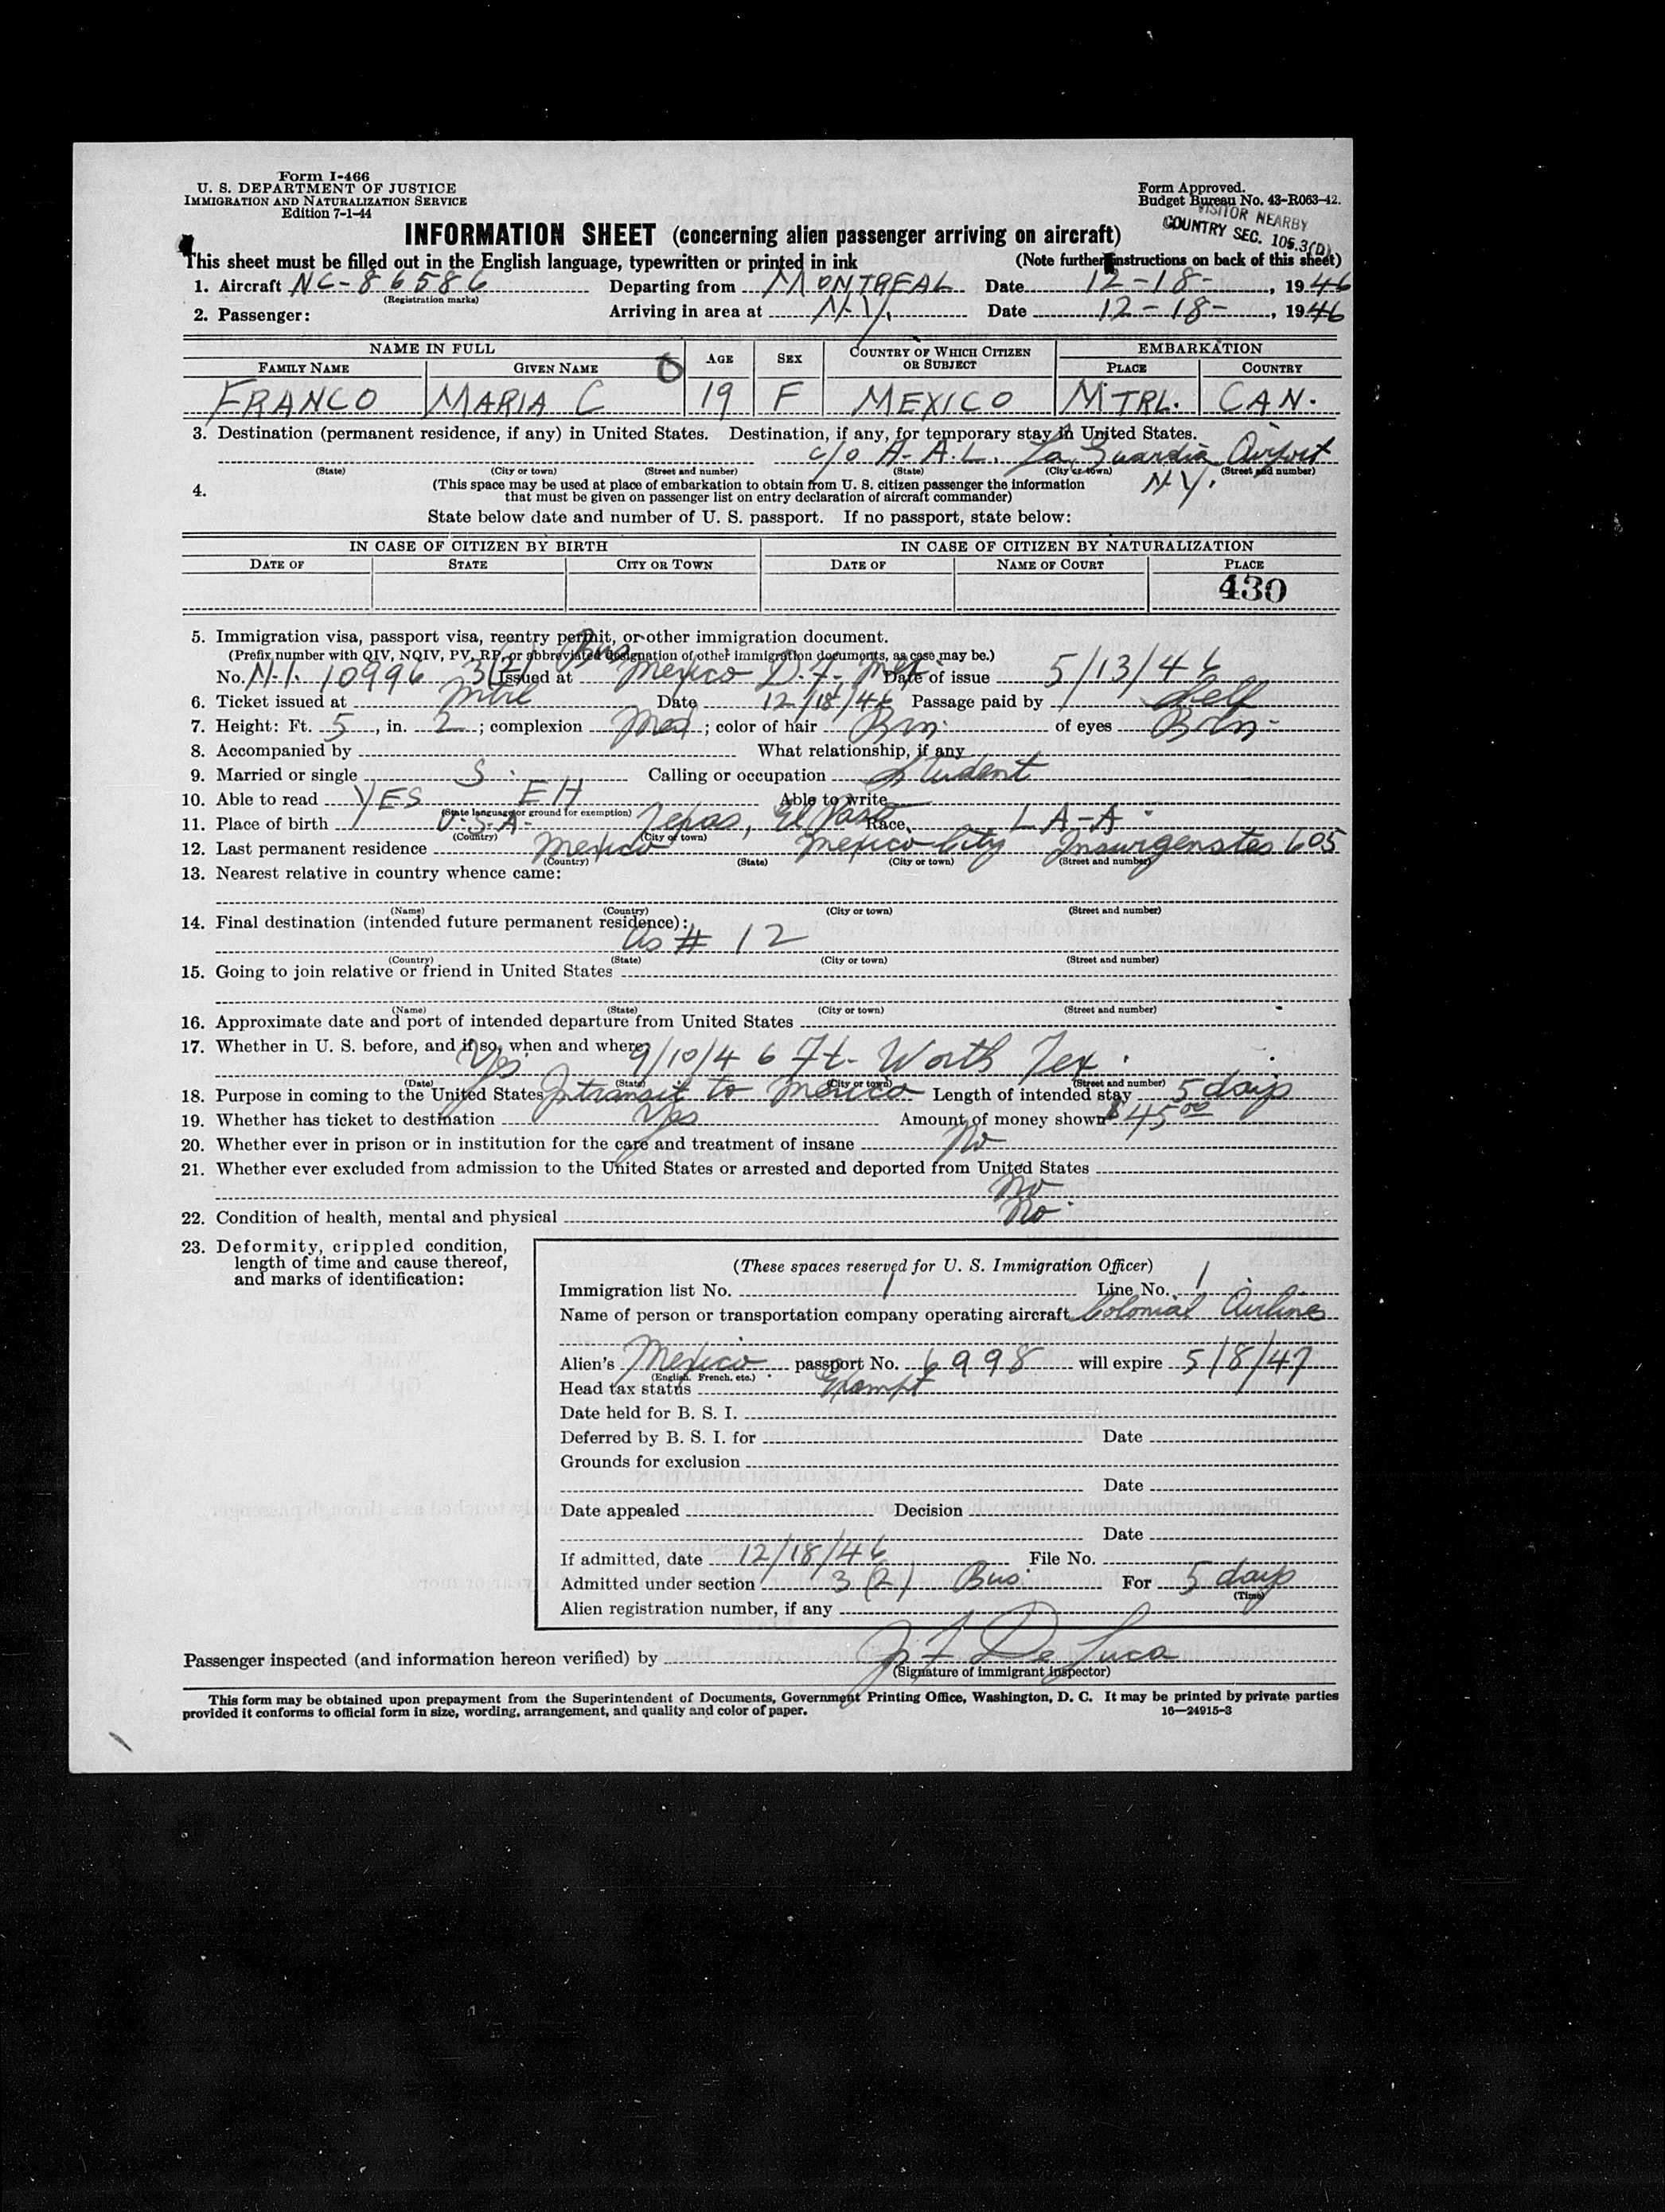 Form I-466
U. S. DEPARTMENT OF JUSTICE
IMMIGRATION AND NATURALIZATION SERVICE
Edition 7-1-44
Form Approved.
Budget Bureau No. 43-R063-42.
VISITOR NEARBY
COUNTRY SEC. 105.3(D)
INFORMATION SHEET (concerning alien passenger arriving on aircraft)
This sheet must be filled out in the English language, typewritten or printed in ink (Note further instructions on back of this sheet)
1. Aircraft NC-86586 Departing from MONTREAL Date 12-18-, 1946
(Registration marks)
2. Passenger: Arriving in area at N.Y. Date 12-18-, 1946
NAME IN FULL AGE SEX COUNTRY OF WHICH CITIZEN OR SUBJECT EMBARKATION
FAMILY NAME GIVEN NAME PLACE COUNTRY
FRANCO MARIA C 19 F MEXICO MTRL. CAN.
3. Destination (permanent residence, if any) in United States. Destination, if any, for temporary stay in United States.
c/o A.A.L. La Guardia Airport
(State) (City or town) (Street and number) (State) (City or town) (Street and number)
N.Y.
4. (This space may be used at place of embarkation to obtain from U. S. citizen passenger the information
that must be given on passenger list on entry declaration of aircraft commander)
State below date and number of U. S. passport. If no passport, state below:
IN CASE OF CITIZEN BY BIRTH IN CASE OF CITIZEN BY NATURALIZATION
DATE OF STATE CITY OR TOWN DATE OF NAME OF COURT PLACE
430
5. Immigration visa, passport visa, reentry permit, or other immigration document.
(Prefix number with QIV, NQIV, PV, RP, or abbreviated designation of other immigration documents, as case may be.)
No. N.I. 10996 3(2) Bus Issued at Mexico D.F. Mex. Date of issue 5/13/46
6. Ticket issued at Mtrl Date 12/18/46 Passage paid by Self
7. Height: Ft. 5, in. 2; complexion Med; color of hair Brn. of eyes Brn-
8. Accompanied by What relationship, if any
9. Married or single S. Calling or occupation Student
10. Able to read YES EH Able to write
(State language or ground for exemption)
11. Place of birth U.S.A- Texas, El Paso Race LA-A
(Country) (City or town)
12. Last permanent residence Mexico Mexico City Insurgenstes 605
(Country) (State) (City or town) (Street and number)
13. Nearest relative in country whence came:
(Name) (Country) (City or town) (Street and number)
14. Final destination (intended future permanent residence):
As # 12
(Country) (State) (City or town) (Street and number)
15. Going to join relative or friend in United States
(Name) (State) (City or town) (Street and number)
16. Approximate date and port of intended departure from United States
17. Whether in U. S. before, and if so, when and where
Yes 9/10/46 Ft- Worth Tex.
(Date) (State) (City or town) (Street and number)
18. Purpose in coming to the United States Intransit to Mexico Length of intended stay 5 days
19. Whether has ticket to destination Yes Amount of money shown $45.00
20. Whether ever in prison or in institution for the care and treatment of insane No
21. Whether ever excluded from admission to the United States or arrested and deported from United States
No
22. Condition of health, mental and physical No.
23. Deformity, crippled condition,
length of time and cause thereof,
and marks of identification:
(These spaces reserved for U. S. Immigration Officer)
Immigration list No. 1 Line No. 1
Name of person or transportation company operating aircraft Colonial Airlines
Alien's Mexico passport No. 6998 will expire 5/8/47
(English, French, etc.)
Head tax status Exempt
Date held for B. S. I.
Deferred by B. S. I. for Date
Grounds for exclusion
Date
Date appealed Decision
Date
If admitted, date 12/18/46 File No.
Admitted under section 3(2) Bus. For 5 days
(Time)
Alien registration number, if any
Passenger inspected (and information hereon verified) by J F De Luca
(Signature of immigrant inspector)
This form may be obtained upon prepayment from the Superintendent of Documents, Government Printing Office, Washington, D. C. It may be printed by private parties
provided it conforms to official form in size, wording, arrangement, and quality and color of paper. 16—24915-3